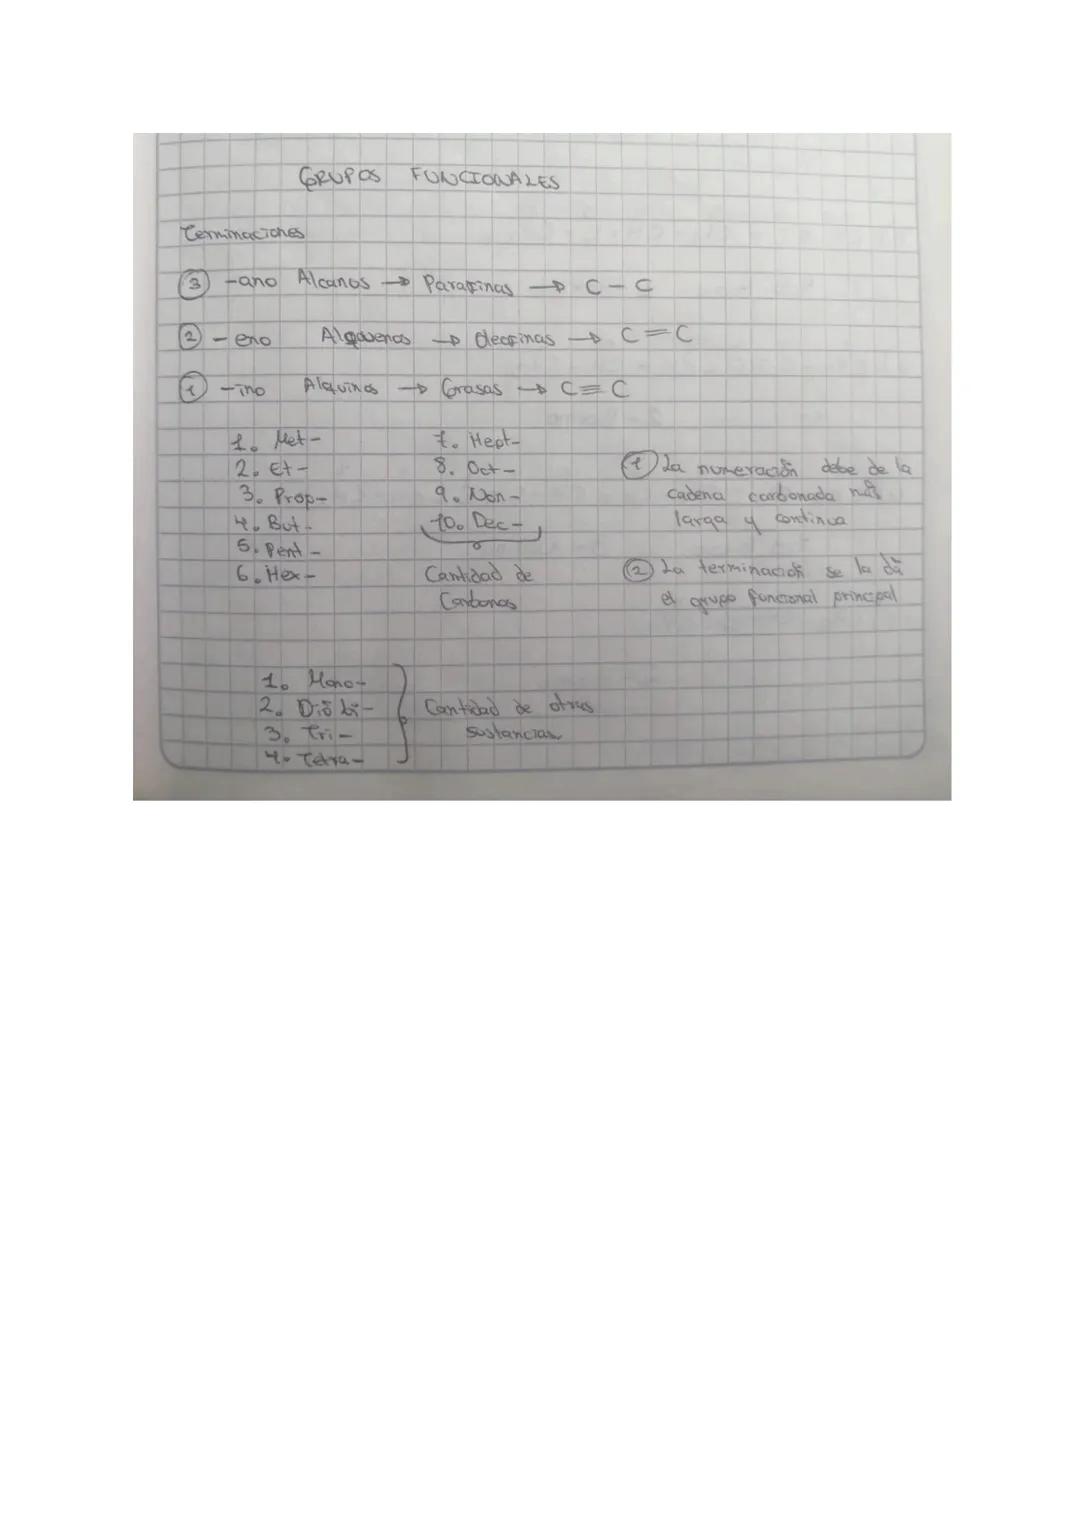 GRUPOS FUNCIONALES
Terminaciones
③ -ano Alcanos → Parafinas → C - C
② - eno Alquenos → Oleofinas → C = C
① -ino Alquinos → Grasas → C ≡ C
1. Met-
2. Et-
3. Prop-
4. But-
5. Pent-
6. Hex-
7. Hept-
8. Oct-
9. Non-
10. Dec-
Cantidad de
Carbonos
① La numeración debe de la
cadena carbonada más
larga y continua
② La terminación se la dá
el grupo funcional principal
1. Mono-
2. Di ó bi-
3. Tri-
4. Tetra-
Cantidad de otras
sustancias